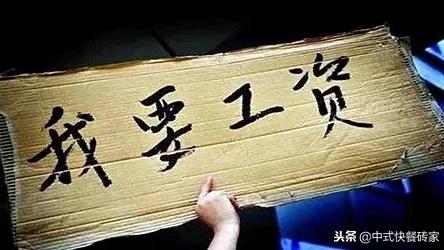 我要工资
头条@中式快餐砖家